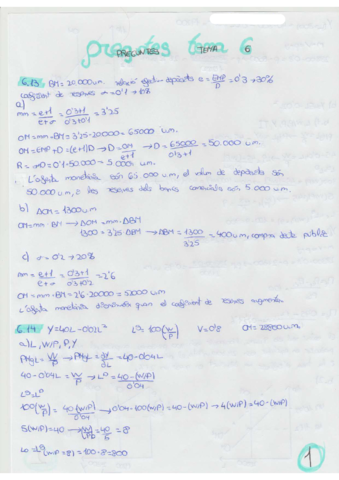 preguntes tema 6
PREGUNTES TEMA 6
6.13 BM=20000um. e=EMP/D=0'3→30%
coeficient de reserves r=0'1→10%
a)
mm=e+1/e+r=0'3+1/0'3+0'1=3'25
OM=mm·BM=3'25·20000=65000 u.m.
OM=EMP+D=(e+1)D→D=OM/e+1→D=65000/0'3+1=50.000 um.
R=r·D=0'1·50.000=5.000 u.m.
L'oferta monetària són 65.000 u.m, el volum de depòsits són
50.000 u.m, i les reserves dels bancs comercials són 5.000 u.m.
b) ΔOM=1300um
OM=mm·BM→ΔOM=mm·ΔBM
1300=3'25·ΔBM→ΔBM=1300/3'25=400um, compra deute públic.
c) r=0'2→20%
mm=e+1/e+r=0'3+1/0'3+0'2=2'6
OM=mm·BM=2'6·20000=52000 um
L'oferta monetària disminueix quan el coeficient de reserves augmenta.
6.14 Y=40L-0'02L² Lº=100(W/P) V=0'8 OM=28800um
a) L, W/P, P, Y
PMgL=W/P→PMgL=dY/dL=40-0'04L
40-0'04L=W/P→Lᴰ=40-(W/P)/0'04
Lº=Lᴰ
100(W/P)=40-(W/P)/0'04→0'04·100(W/P)=40-(W/P)→4(W/P)=40-(W/P)
5(W/P)=40→W/P=40/5=8
Lo=Lº(W/P=8)=100·8=800
1